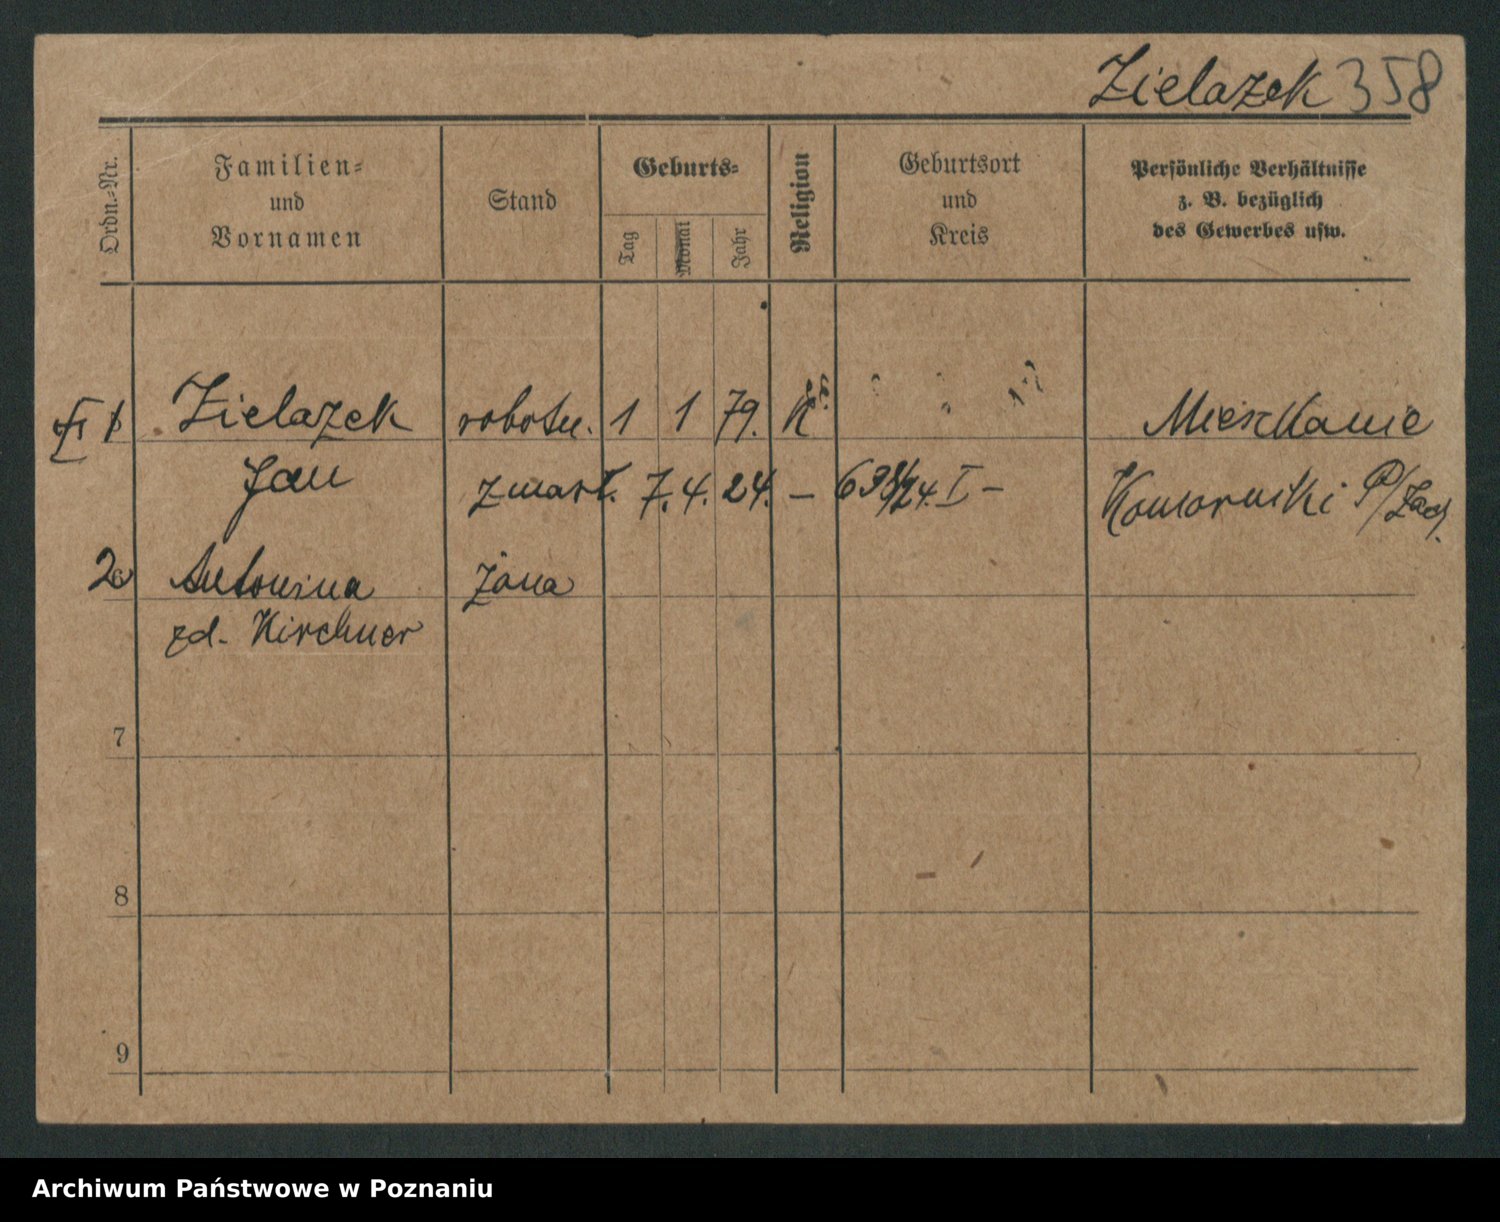 Zielazek 358
Ordn.-Nr.
Familien-
und
Vornamen
Stand
Geburts-
Tag
Monat
Jahr
Religion
Geburtsort
und
Kreis
Persönliche Verhältnisse
z. B. bezüglich
des Gewerbes usw.
1 Zielazek robotn. 1 1 79. K Mieszkanie
Jan zmarł. 7. 4. 24. – 698/24. I – Komorniki P/Zach.
2 Antonina żona
zd. Kirchner
7
8
9
Archiwum Państwowe w Poznaniu